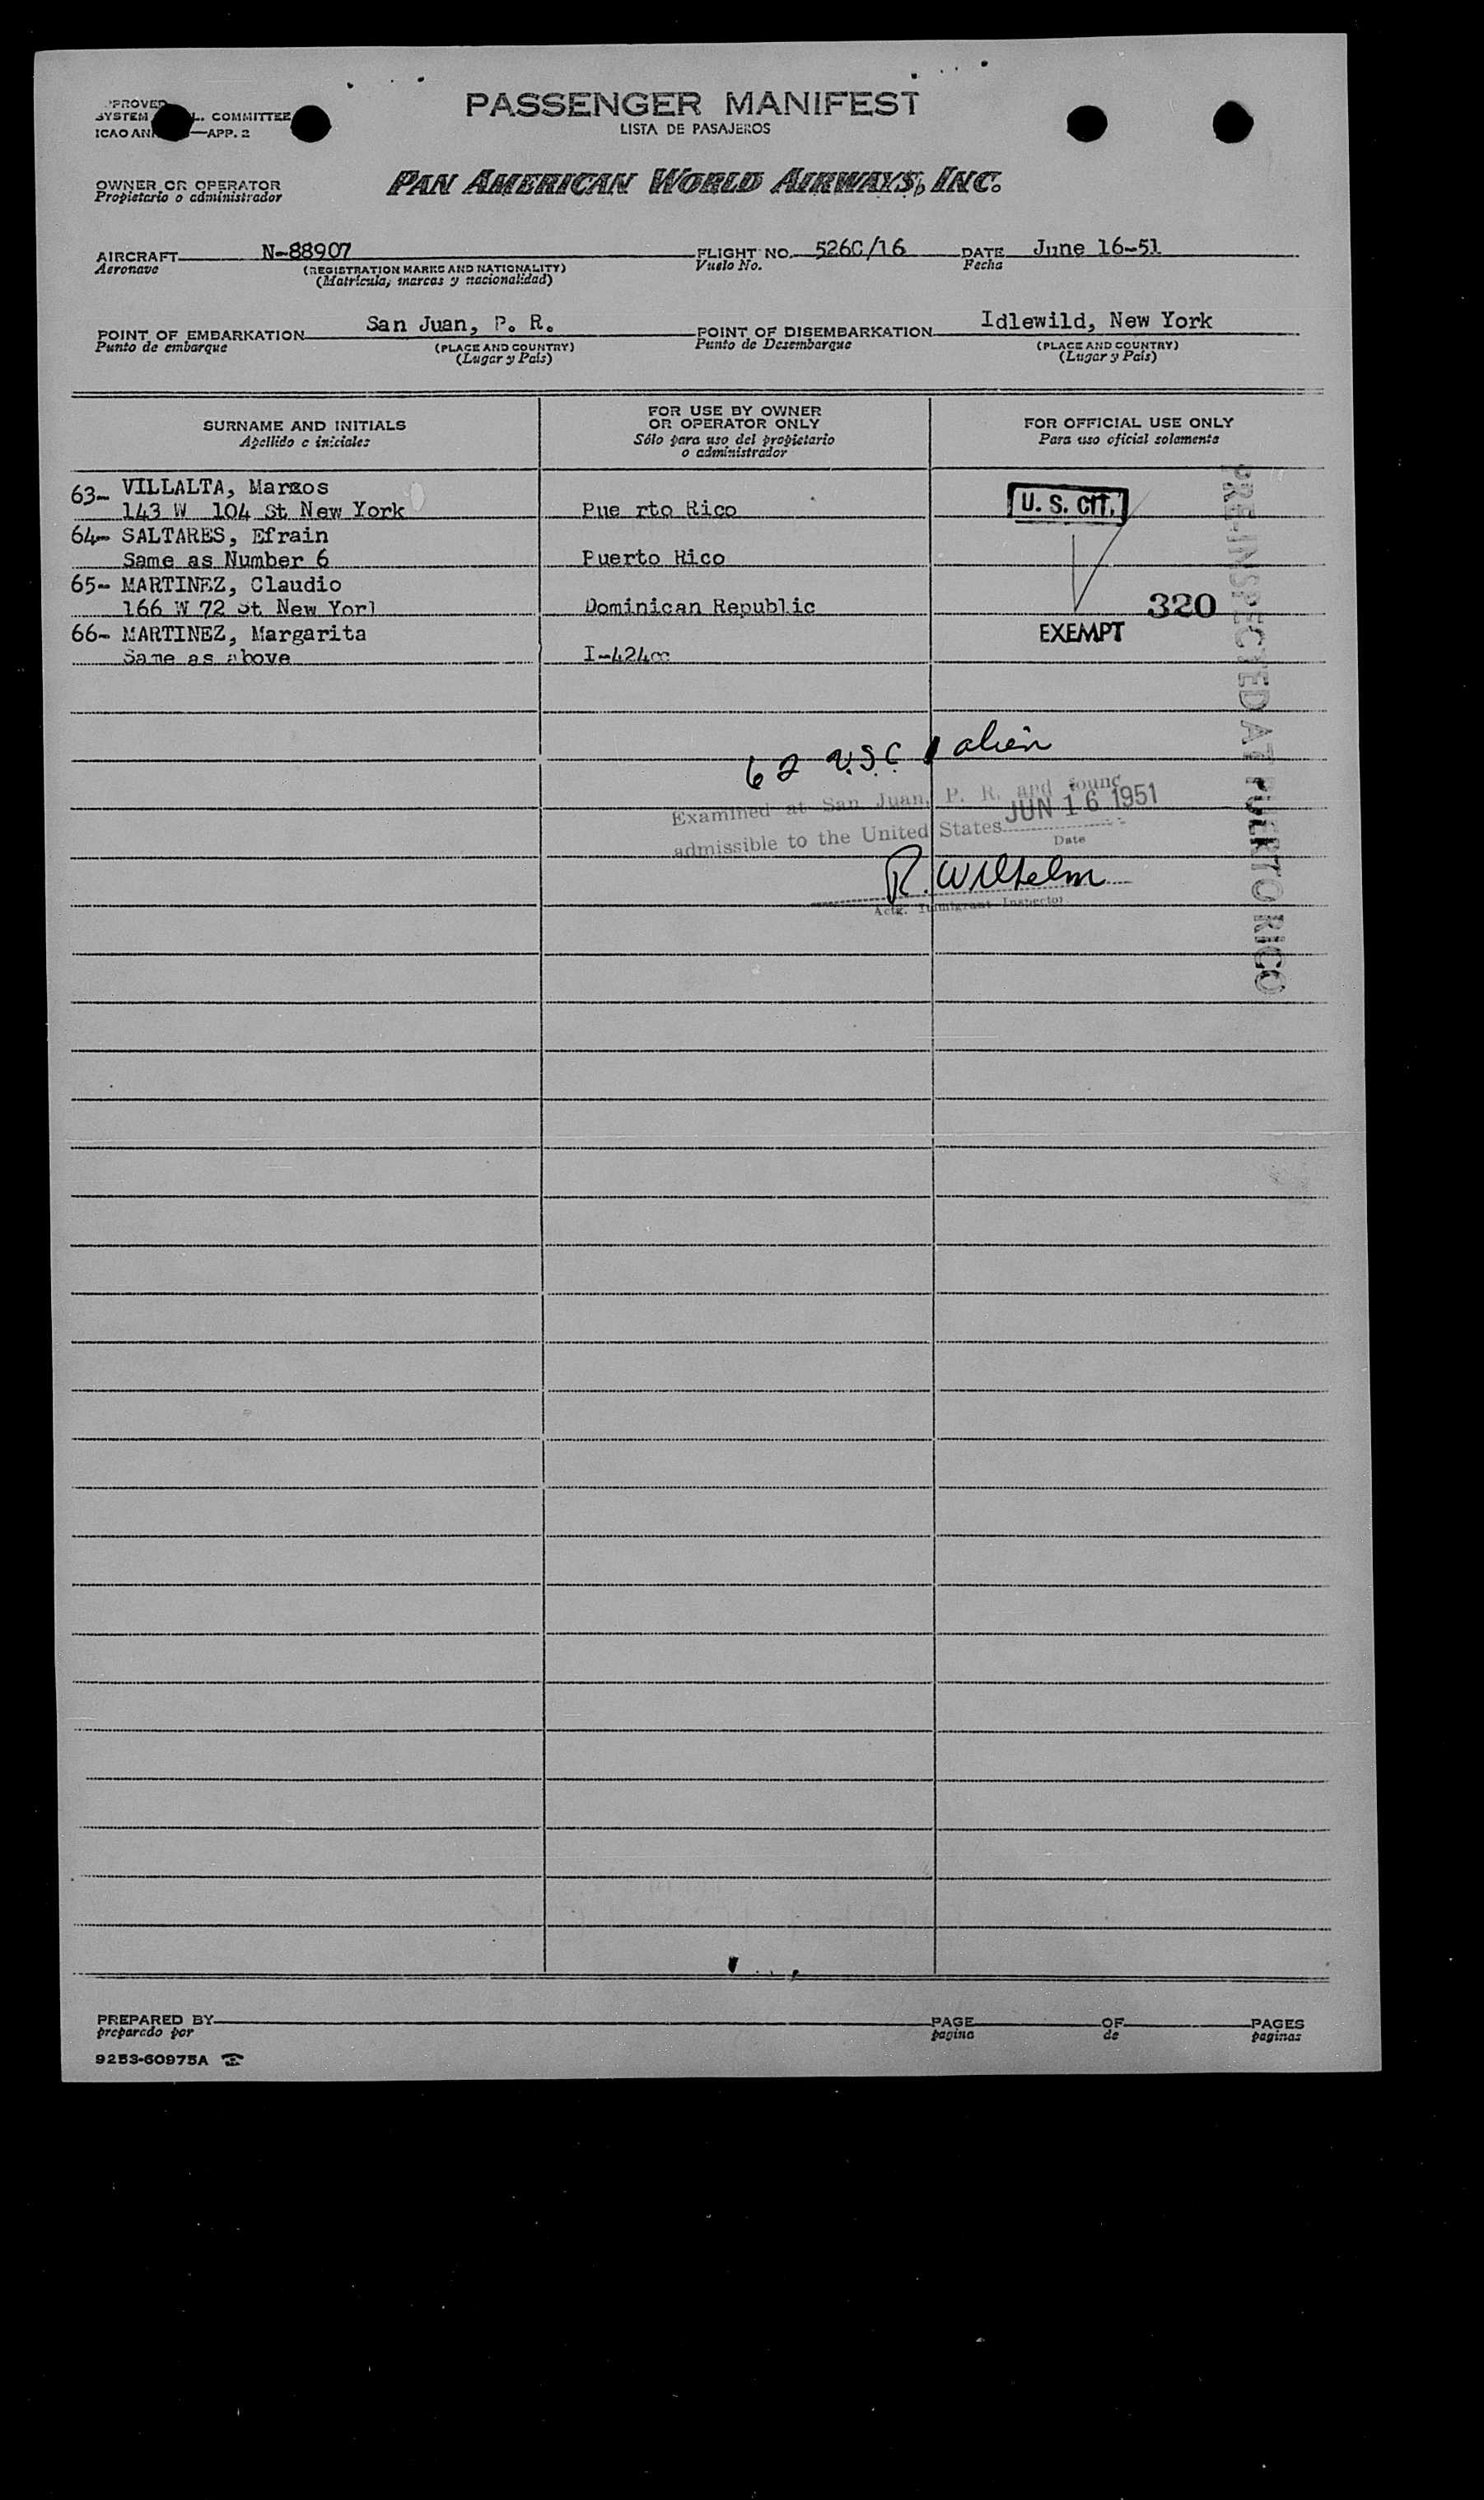 PASSENGER MANIFEST
LISTA DE PASAJEROS
SYSTEM L. COMMITTEE
ICAO —APP. 2
OWNER OR OPERATOR
Propietario o administrador
PAN AMERICAN WORLD AIRWAYS, INC.
AIRCRAFT N-88907 FLIGHT NO. 526C/16 DATE June 16-51
Aeronave (REGISTRATION MARKS AND NATIONALITY) Vuelo No. Fecha
(Matrícula, marcas y nacionalidad)
POINT OF EMBARKATION San Juan, P. R. POINT OF DISEMBARKATION Idlewild, New York
Punto de embarque (PLACE AND COUNTRY) Punto de Desembarque (PLACE AND COUNTRY)
(Lugar y País) (Lugar y País)
SURNAME AND INITIALS
Apellido e iniciales
FOR USE BY OWNER
OR OPERATOR ONLY
Sólo para uso del propietario
o administrador
FOR OFFICIAL USE ONLY
Para uso oficial solamente
63- VILLALTA, Marcos
143 W 104 St New York Pue rto Rico U. S. CIT.
64- SALTARES, Efrain
Same as Number 6 Puerto Rico
65- MARTINEZ, Claudio
166 W 72 St New Yorl Dominican Republic 320
66- MARTINEZ, Margarita EXEMPT
Same as above I-424
PRE-INSPECTED AT PUERTO RICO
62 U.S.C. 1 alien
Examined at San Juan, P. R. and found
JUN 16 1951
admissible to the United States
Date
R. Wilhelm
Actg. Immigrant Inspector
PREPARED BY PAGE OF PAGES
preparado por pagina de paginas
9253-60975A